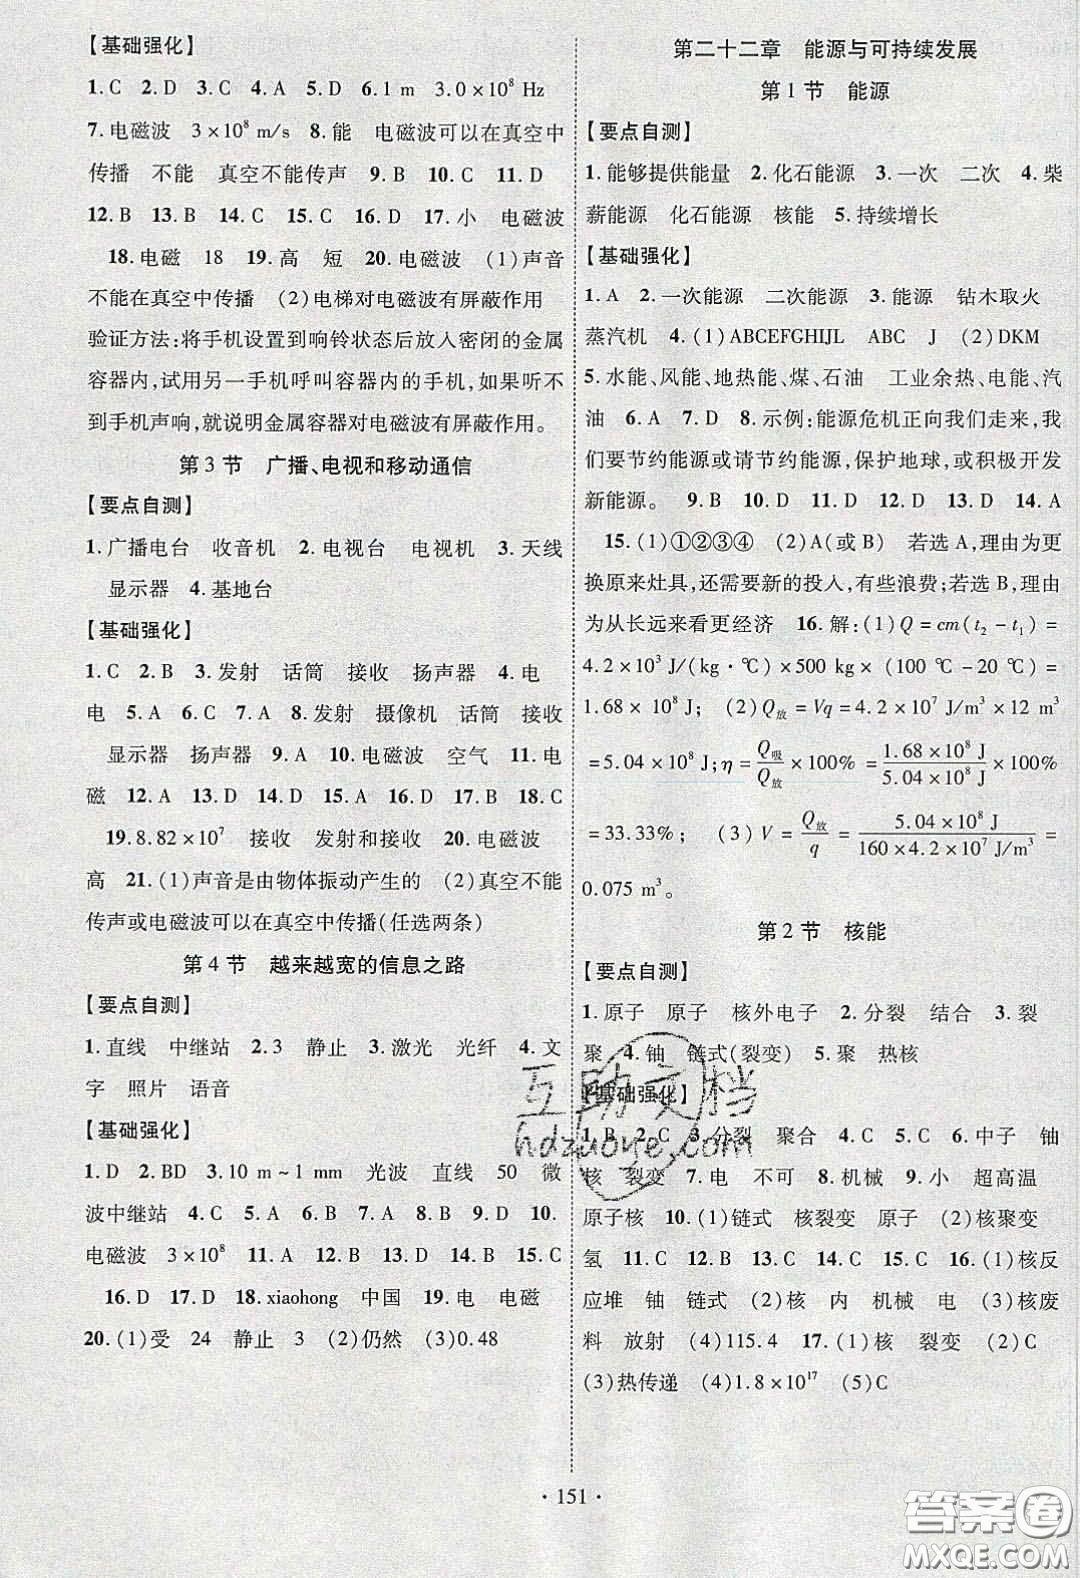 【基础强化】
1.C 2.D 3.C 4.A 5.D 6.1 m 3.0×10⁸ Hz
7.电磁波 3×10⁸ m/s 8.能 电磁波可以在真空中
传播 不能 真空不能传声 9.B 10.C 11.D
12.B 13.B 14.C 15.C 16.D 17.小 电磁波
18.电磁 18 19.高 短 20.电磁波 (1)声音
不能在真空中传播 (2)电梯对电磁波有屏蔽作用
验证方法:将手机设置到响铃状态后放入密闭的金属
容器内,试用另一手机呼叫容器内的手机,如果听不
到手机声响,就说明金属容器对电磁波有屏蔽作用。
第3节 广播、电视和移动通信
【要点自测】
1.广播电台 收音机 2.电视台 电视机 3.天线
显示器 4.基地台
【基础强化】
1.C 2.B 3.发射 话筒 接收 扬声器 4.电
电 5.A 6.C 7.A 8.发射 摄像机 话筒 接收
显示器 扬声器 9.A 10.电磁波 空气 11.电
磁 12.A 13.D 14.D 15.D 16.D 17.B 18.C
19.8.82×10⁷ 接收 发射和接收 20.电磁波
高 21.(1)声音是由物体振动产生的 (2)真空不能
传声或电磁波可以在真空中传播(任选两条)
第4节 越来越宽的信息之路
【要点自测】
1.直线 中继站 2.3 静止 3.激光 光纤 4.文
字 照片 语音
【基础强化】
1.D 2.BD 3.10 m~1 mm 光波 直线 50 微
波中继站 4.C 5.C 6.D 7.A 8.B 9.D 10.
电磁波 3×10⁸ 11.A 12.D 13.B 14.B 15.C
16.D 17.D 18.xiaohong 中国 19.电 电磁
20.(1)受 24 静止 3 (2)仍然 (3)0.48
第二十二章 能源与可持续发展
第1节 能源
【要点自测】
1.能够提供能量 2.化石能源 3.一次 二次 4.柴
薪能源 化石能源 核能 5.持续增长
【基础强化】
1.A 2.一次能源 二次能源 3.能源 钻木取火
蒸汽机 4.(1)ABCEFGHIJL ABC J (2)DKM
5.水能、风能、地热能、煤、石油 工业余热、电能、汽
油 6.A 7.D 8.示例:能源危机正向我们走来,我
们要节约能源或请节约能源,保护地球,或积极开发
新能源。 9.B 10.D 11.D 12.D 13.D 14.A
15.(1)①②③④ (2)A(或B) 若选A,理由为更
换原来灶具,还需要新的投入,有些浪费;若选B,理由
为从长远来看更经济 16.解:(1)Q=cm(t₂-t₁)=
4.2×10³ J/(kg·℃)×500 kg×(100 ℃-20 ℃)=
1.68×10⁸ J; (2)Q放=Vq=4.2×10⁷ J/m³×12 m³
=5.04×10⁸ J;η=Q吸/Q放×100%=1.68×10⁸ J/5.04×10⁸ J×100%
=33.33%; (3)V=Q放/q=5.04×10⁸ J/160×4.2×10⁷ J/m³=
0.075 m³。
第2节 核能
【要点自测】
1.原子 原子 核外电子 2.分裂 结合 3.裂
聚 4.铀 链式(裂变) 5.聚 热核
【基础强化】
1.B 2.C 3.分裂 聚合 4.C 5.C 6.中子 铀
核 裂变 7.电 不可 8.机械 9.小 超高温
原子核 10.(1)链式 核裂变 原子 (2)核聚变
氢 11.C 12.B 13.B 14.C 15.C 16.(1)核反
应堆 铀 链式 (2)核 内 机械 电 (3)核废
料 放射 (4)115.4 17.(1)核 裂变 (2)C
(3)热传递 (4)1.8×10¹⁷ (5)C
互助文档
hdzuoye.com
·151·
答案圈
MXQE.COM